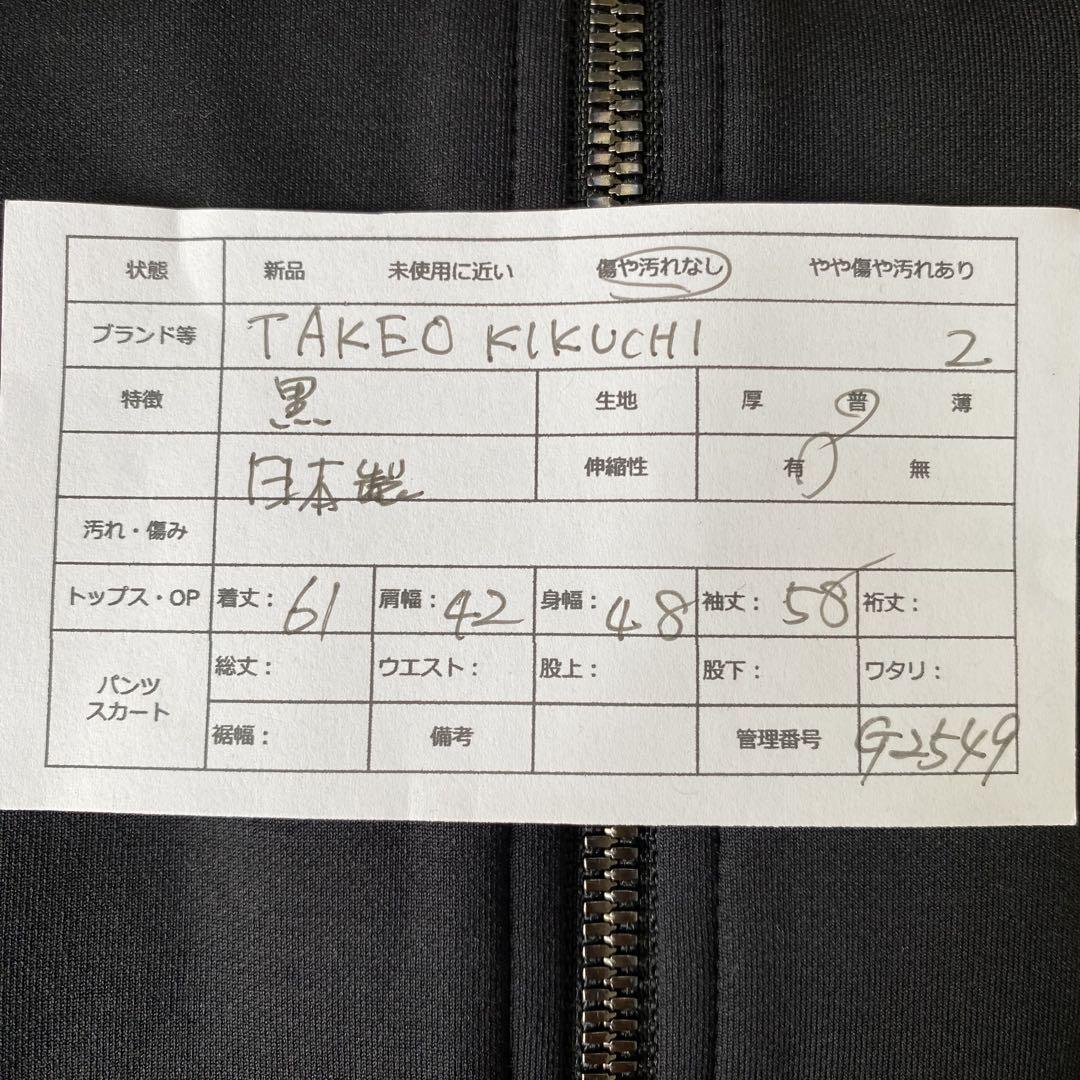 状態 新品 未使用に近い 傷や汚れなし やや傷や汚れあり
ブランド等 TAKEO KIKUCHI 2
特徴 黒 生地 厚 普 薄
日本製 伸縮性 有 無
汚れ・傷み
トップス・OP 着丈：61 肩幅：42 身幅：48 袖丈：58 裄丈：
パンツ スカート 総丈： ウエスト： 股上： 股下： ワタリ：
裾幅： 備考 管理番号 G2549